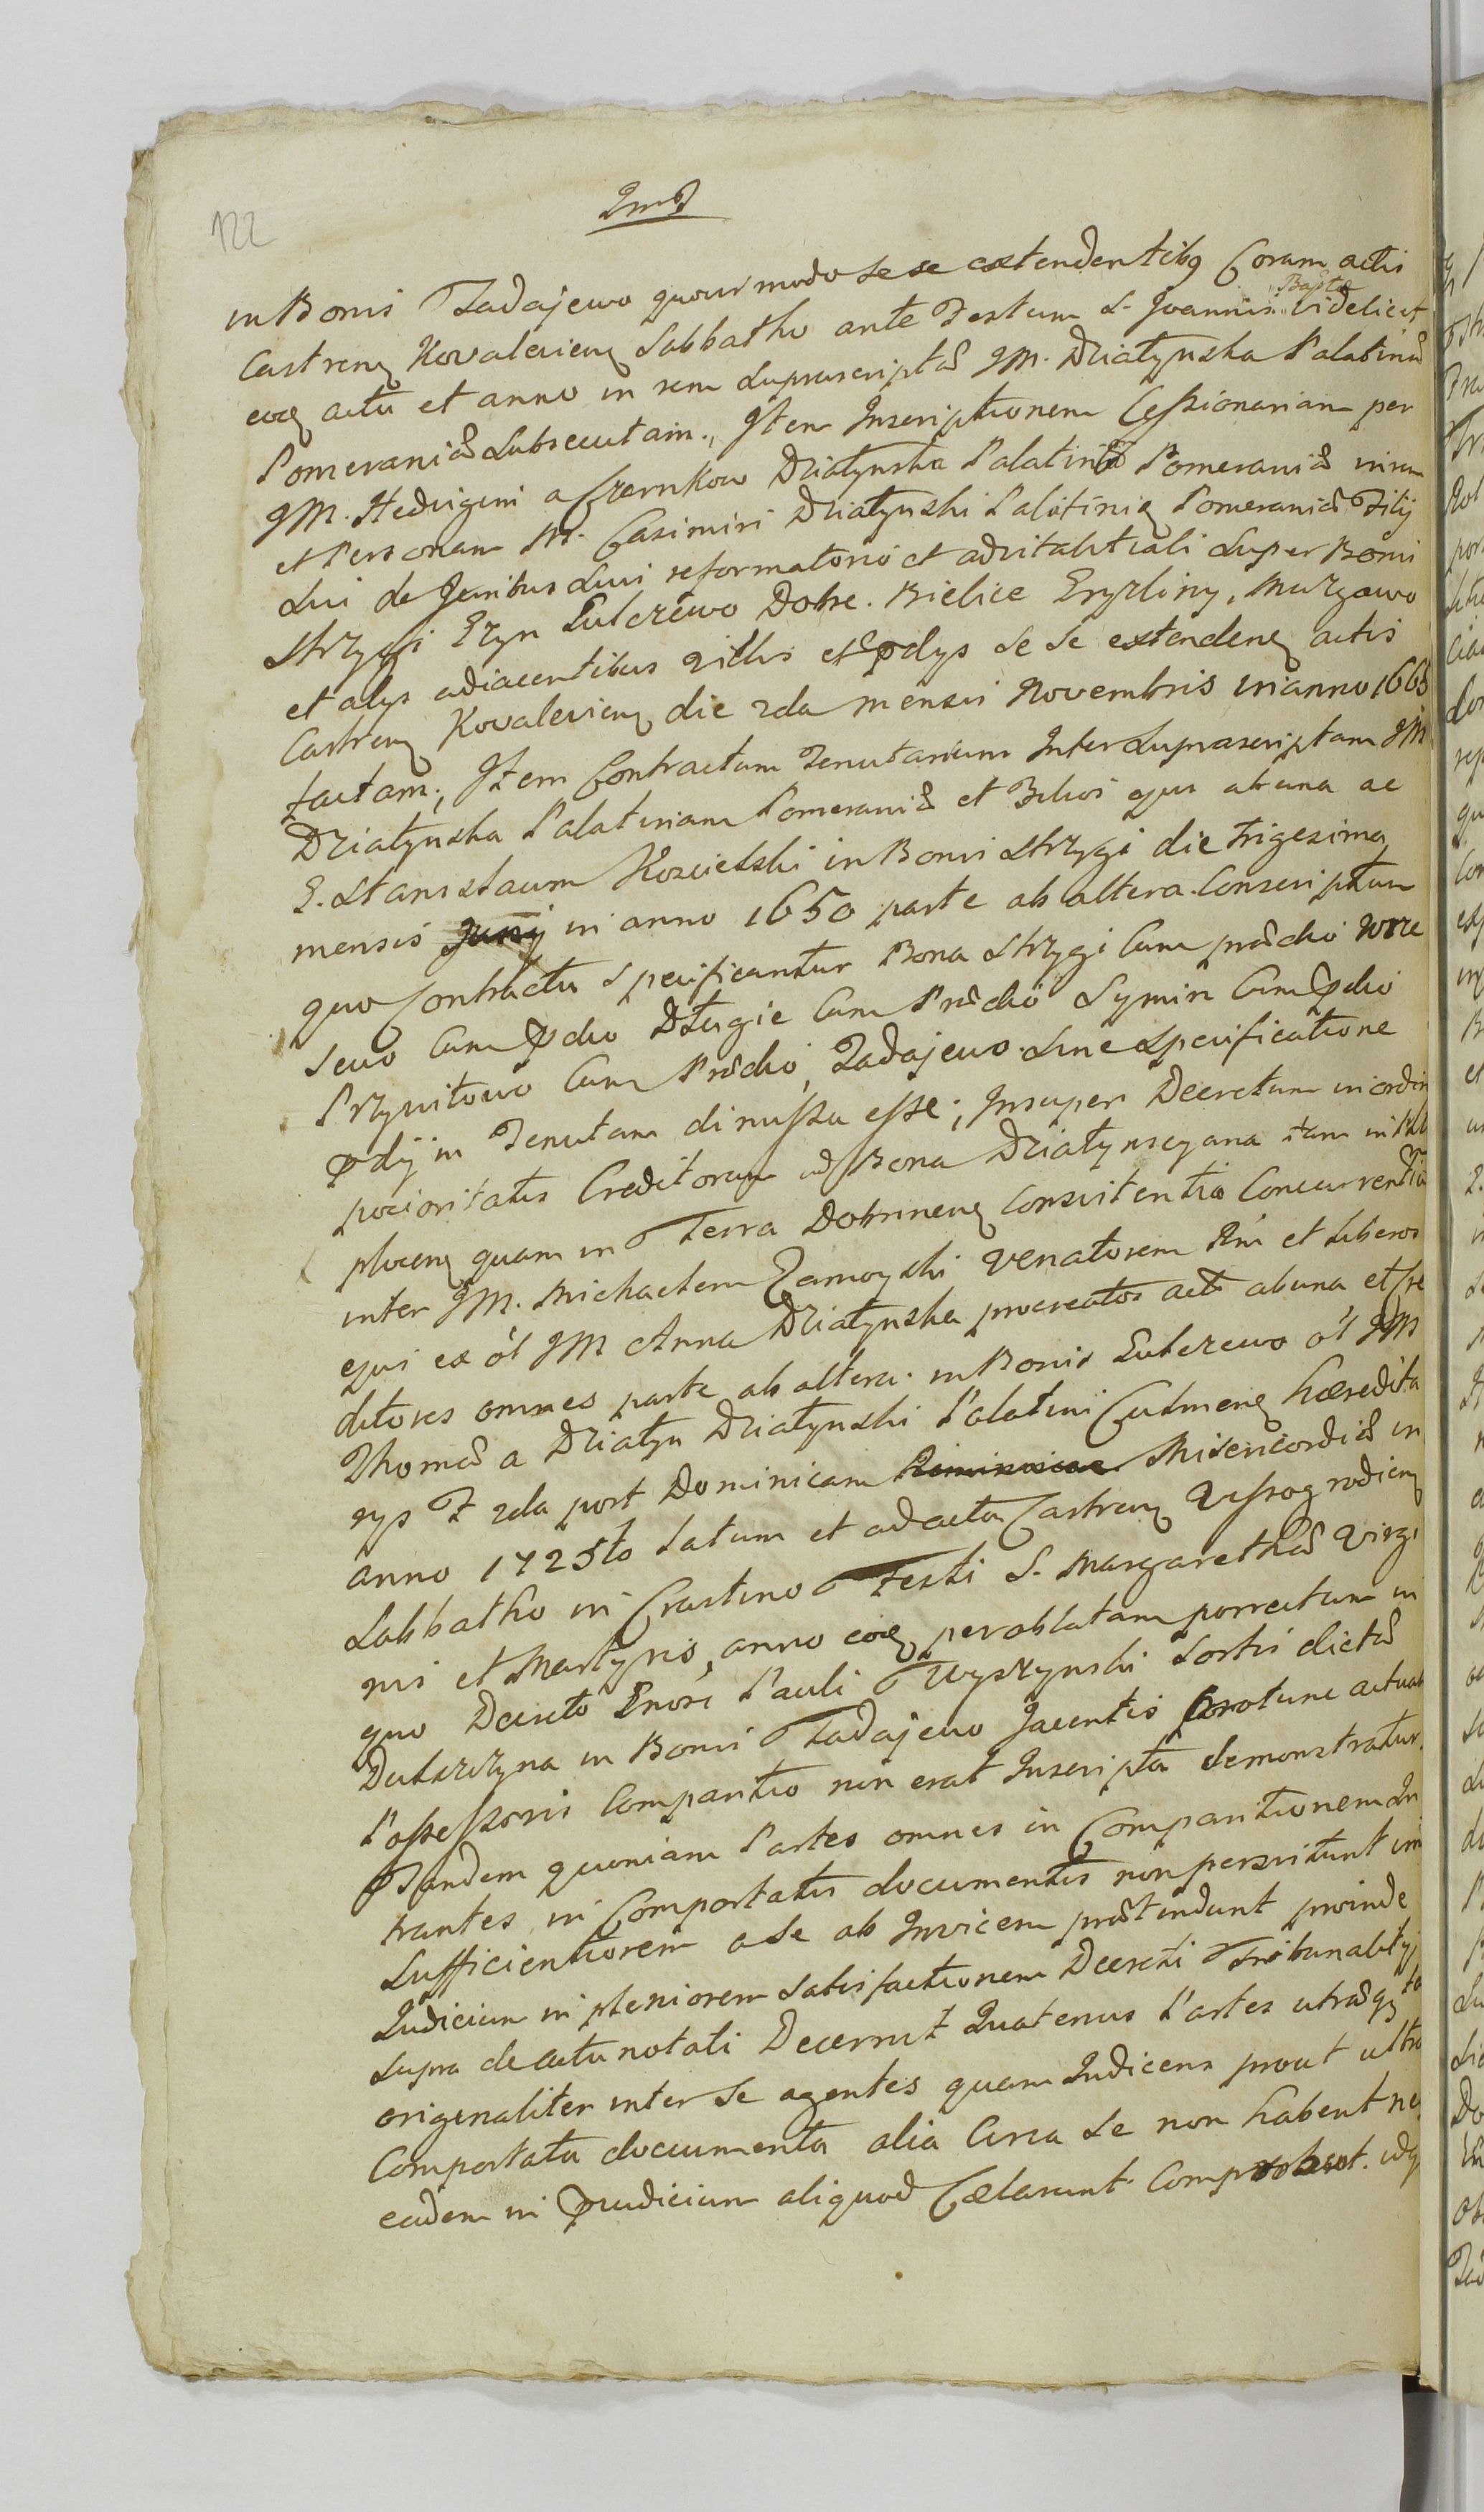 122
in Bonis Tadajewo quovis modo sese extendentibq Coram actis
Castrenq Kovalevienq Sabbatho ante Festum S. Joannis Baptæ videlicet
eoq actu et anno in rem Supranscriptæ JM. Działynska Palatinæ
Pomeraniæ Subsecutam., Item Inscriptionem Cessionariam per
JM. Hedvigem a Czarnkow Działynska Palatinæ Pomeraniæ in rem
et Personam M. Casimiri Działynski Palatiniq Pomeraniæ Filij
Sui de Juribus Sui reformatorio et advitalitiali Super Bonis
Strzygi Gzyn Sulerzewo Dobre. Bielice Gryzliny, Murzawo
et alys adiacentibus villis et pdys se se extendenq actis
Castrenq Kovalevienq die 2da mensis Novembris in anno 1665
factam., Item Contractum Tenutarium Inter Suprascriptam JM
Działynska Palatinam Pomeraniæ et Filios ejus ab una ac
G. Stanislaum Koscielski in Bonis Strzygi die trigesima
mensis Junij in anno 1650 parte ab altera. Conscriptum
quo Contractu Specificantur Bona Strzygi Cum prædio Wrze
sewo Cum pdio Długie Cum Prædio Symin Cum pdio
Przywitowo Cum Prædio, Tadajewo. Sine Specificatione
pdij in Tenutam dimissa esse; Insuper Decretum in ordin
pocioritatis Creditorum ad Bona Działynscyana tam in Plt
plocenq quam in Terra Dobrinenq Consistentia Concurrentiu
inter JM. Michaelem Zamoyski Venatorem Rni et liberos
ejus ex ol JM Anna Działynska procreatos act ab una et Cre
ditores omnes parte ab altera. in Bonis Sulerzewo ol JM
Thomæ a Działyn Działynski Palatini Culmenq hæredita
rys F 2da post Dominicam Misericordiæ in
anno 1725to latum et ad acta Castrenq Wyssogrodienq
Sabbatho in Crastino Festi S. Margarethæ Virgi
nis et Martyris, anno eoq per oblatam porrectum in
quo Decreto Gnosi Pauli Wyszynski Sortis dictæ
Dulszczyzna in Bonis Tadajewo Jacentis pro tunc actual
Possessoris Comparitio non erat Inscripta demonstratur.
Tandem quoniam Partes omnes in Comparitionem In
trantes in Comportatis documentis non persistunt imo
Sufficientiorem a se ab Invicem prætendunt proinde
Judicium in pleniorem Satisfactionem Decreti Tribunalitij
Supra de actu notati Decernit Quatenus Partes utræqq ta
originaliter inter se agentes quam Judicens prout ultra
Comportata documenta alia Circa se non habent neq
eadem in pjudicium aliquod Cælarunt Comprobent. idq